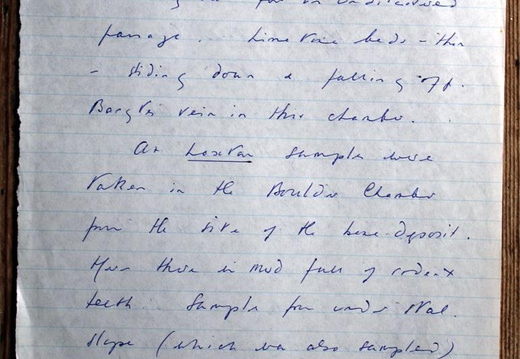 for an undiscovered
passage. Limestone beds - thin
- sliding down & falling off.
Barytes vein in this chamber.
At Loxton samples were
taken in the Boulder Chamber
from the site of the bone deposit.
Here there is mud full of rodent
teeth. Sample from under stal.
slope (which was also sampled)